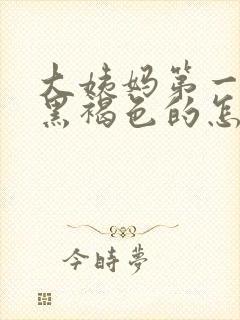 大姨妈第一
黑褐色的怎
今時夢